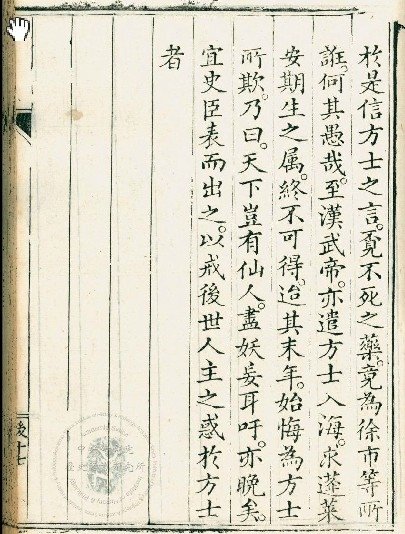 於是信方士之言。覔不死之藥。竟為徐市等所
誑。何其愚哉。至漢武帝。亦遣方士入海。求蓬萊
安期生之属。終不可得。迨其末年。始悔為方士
所欺。乃曰。天下豈有仙人。盡妖妄耳。吁。亦晚矣。
宜史臣表而出之。以戒後世人主之惑於方士
者